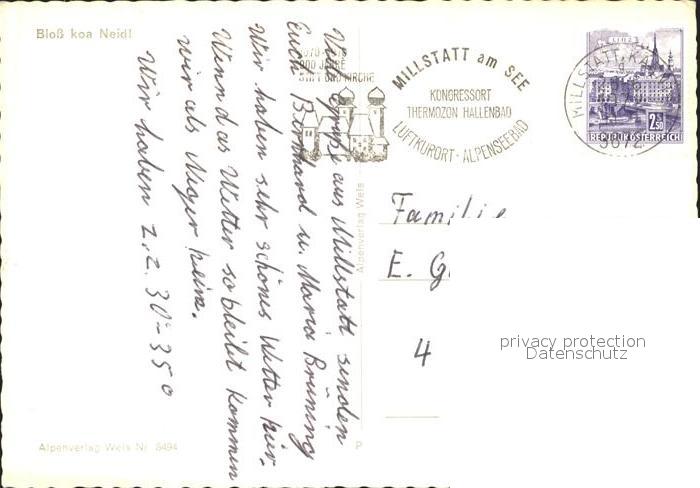 Bloß koa Neid!
Viele Grüße aus Millstatt senden
Euch Bernhard u. Maria Brüning
Wir haben sehr schönes Wetter hier.
Wenn das Wetter so bleibt kommen
wir als Neger heim.
Wir haben z.Z. 30°-35°
1070-1970
900 JAHRE
STIFT UND KIRCHE
MILLSTATT am SEE
KONGRESSORT
THERMOZON HALLENBAD
LUFTKURORT - ALPENSEEBAD
LINZ
MILLSTATT, KÄ
9872
REPUBLIK ÖSTERREICH
2.50
Familie
E. G
4
privacy protection
Datenschutz
Alpenverlag Wels
Alpenverlag Wels Nr. 8494
P